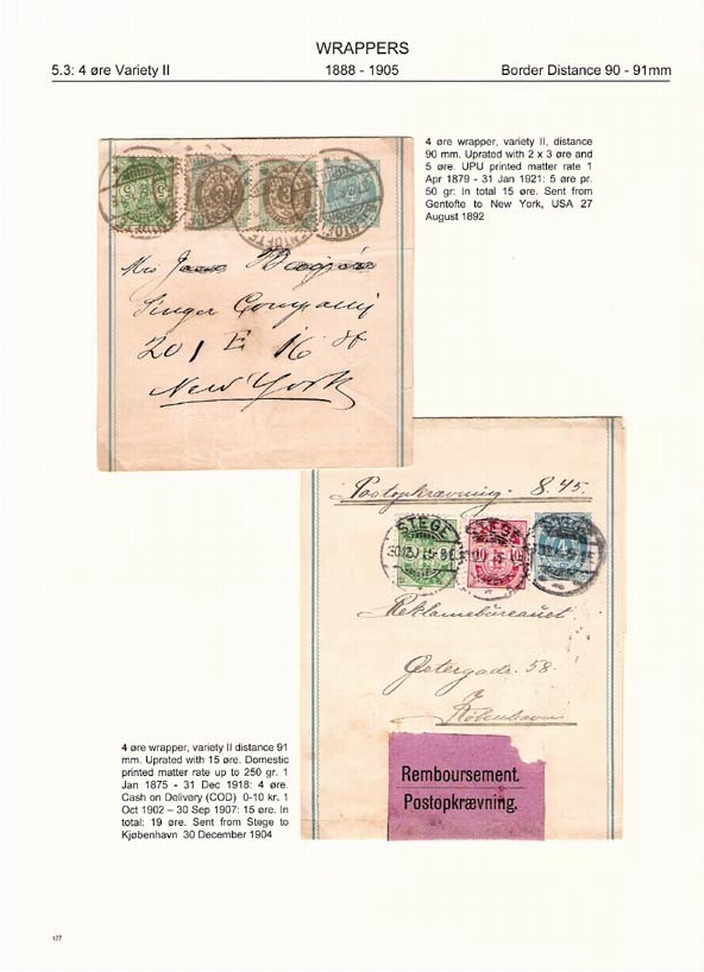 WRAPPERS
5.3: 4 øre Variety II 1888 - 1905 Border Distance 90 - 91mm
4 øre wrapper, variety II, distance
90 mm. Uprated with 2 x 3 øre and
5 øre. UPU printed matter rate 1
Apr 1879 - 31 Jan 1921: 5 øre pr.
50 gr: In total 15 øre. Sent from
Gentofte to New York, USA 27
August 1892
Singer Company
201 E 16 St
New York
Postopkrævning. 8.45.
STEGE STEGE STEGE
Reklamebureauet
Østergade. 58.
København
Remboursement.
Postopkrævning.
4 øre wrapper, variety II distance 91
mm. Uprated with 15 øre. Domestic
printed matter rate up to 250 gr. 1
Jan 1875 - 31 Dec 1918: 4 øre.
Cash on Delivery (COD) 0-10 kr. 1
Oct 1902 – 30 Sep 1907: 15 øre. In
total: 19 øre. Sent from Stege to
Kjøbenhavn 30 December 1904